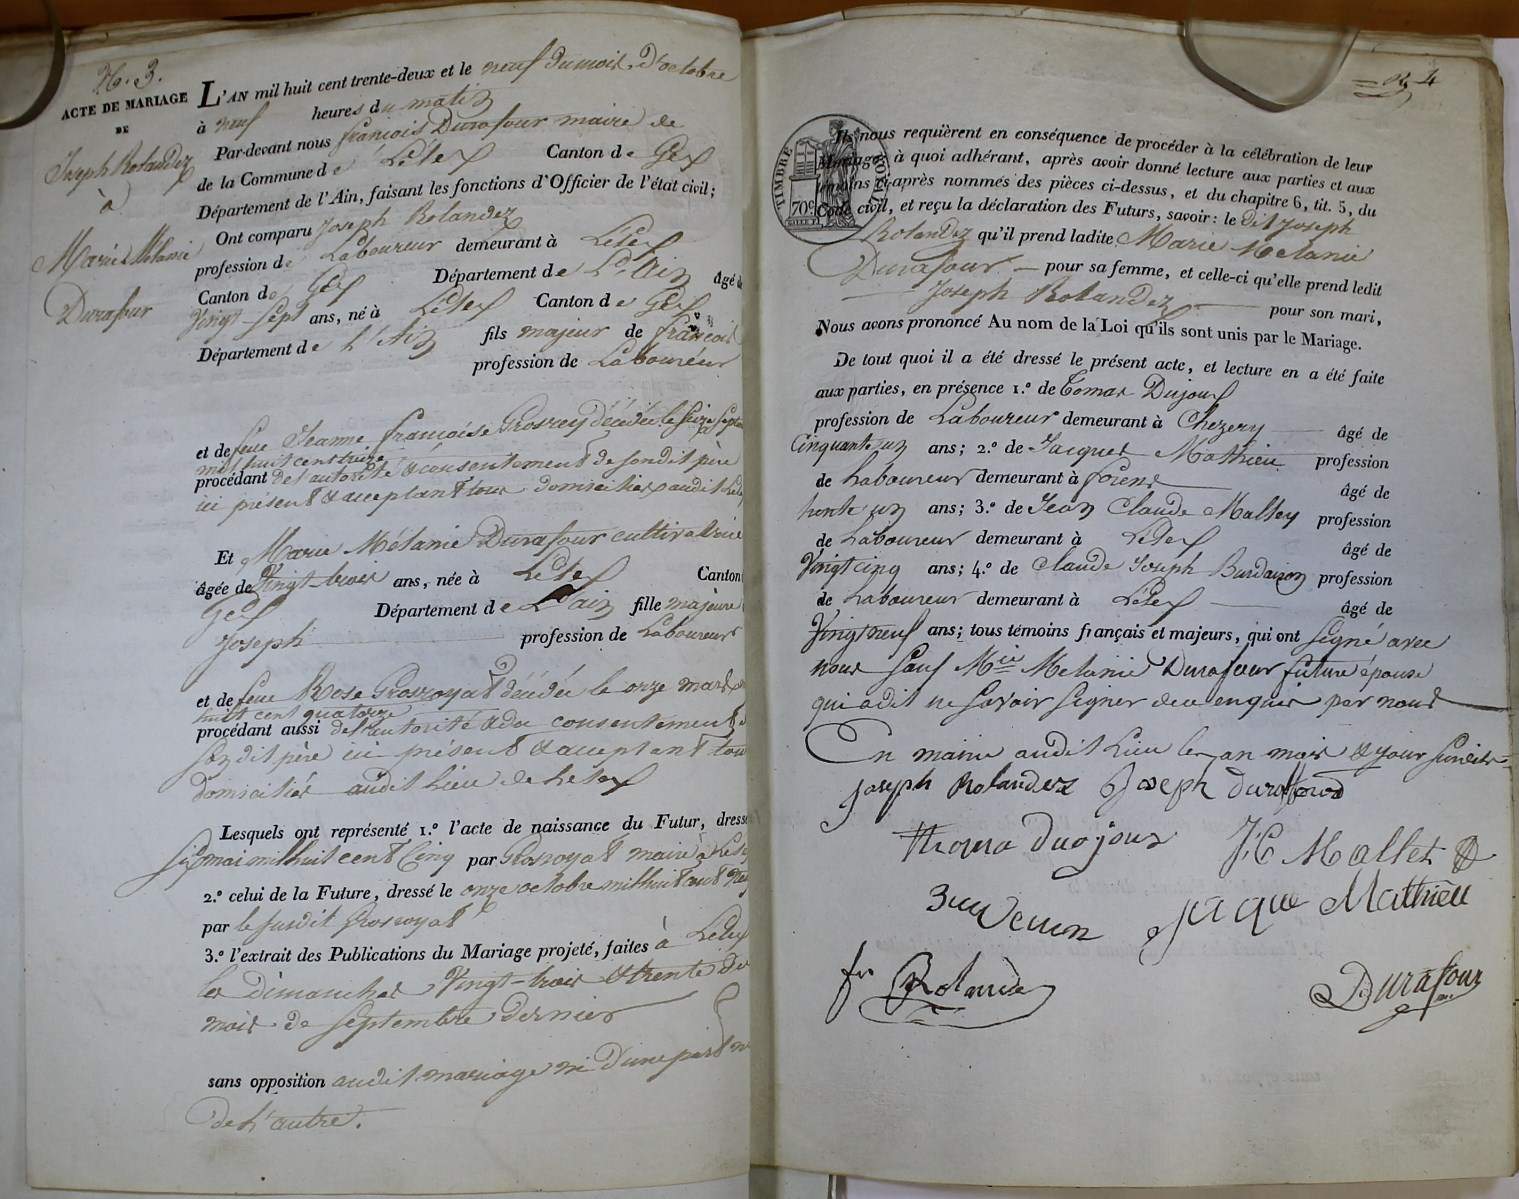 N.º 3.
ACTE DE MARIAGE
DE
Joseph Rolandez
à
Marie Mélanie
Durafour
L'AN mil huit cent trente-deux et le neuf du mois d'octobre
à neuf heures du matin
Par-devant nous françois Durafour maire de
de la Commune de Lélex Canton de Gex
Département de l'Ain, faisant les fonctions d'Officier de l'état civil;
Ont comparu Joseph Rolandez
profession de Laboureur demeurant à Lélex
Canton de Gex Département de L'Ain âgé d
Vingt-Sept ans, né à Lélex Canton de Gex
Département de L'Ain fils majeur de françois
profession de Laboureur
et de feue Jeanne françoise Grosrey décédée le seize Septem
mil huit cent treize
procédant de l'autorité & consentement de son dit père
ici présent & acceptant tous domiciliés audit Lélex
Et Marie Mélanie Durafour cultivatrice
âgée de Vingt-trois ans, née à Lélex Canton
Gex Département de L'ain fille majeure
Joseph profession de Laboureur
et de feue Rose Grosroyat décédée le onze mars
huit cent quatorze
procédant aussi de l'autorité & du consentement
son dit père ici présent & acceptant tous
domiciliés audit Lieu de Lélex
Lesquels ont représenté 1.º l'acte de naissance du Futur, dressé
six mai mil huit cent Cinq par Grosroyat maire à Lélex
2.º celui de la Future, dressé le onze octobre mil huit cent neuf
par le susdit Grosroyat
3.º l'extrait des Publications du Mariage projeté, faites à Lélex
les dimanches Vingt-trois & trente du
mois de Septembre Dernier
sans opposition audit mariage ni d'une part ni
de L'autre.
4
TIMBRE ROYAL
70 c
Ils nous requièrent en conséquence de procéder à la célébration de leur
Mariage, à quoi adhérant, après avoir donné lecture aux parties et aux
témoins ci-après nommés des pièces ci-dessus, et du chapitre 6, tit. 5, du
Code civil, et reçu la déclaration des Futurs, savoir: le dit Joseph
Rolandez qu'il prend ladite Marie Mélanie
Durafour pour sa femme, et celle-ci qu'elle prend ledit
Joseph Rolandez pour son mari,
Nous avons prononcé Au nom de la Loi qu'ils sont unis par le Mariage.
De tout quoi il a été dressé le présent acte, et lecture en a été faite
aux parties, en présence 1.º de Tomas Dujoux
profession de Laboureur demeurant à Chezery âgé de
Cinquante un ans; 2.º de Jacques Mathieu profession
de Laboureur demeurant à forens âgé de
trente un ans; 3.º de Jean Claude Malley profession
de Laboureur demeurant à Lélex âgé de
Vingt cinq ans; 4.º de Claude Joseph Burdairon profession
de Laboureur demeurant à Lélex âgé de
Vingt neuf ans; tous témoins français et majeurs, qui ont Signé avec
nous Sauf Mie Mélanie Durafour future épouse
qui a dit ne Savoir Signer de ce enquis par nous
En mairie audit Lieu les an mois & jour Susdits
joseph Rolandez Joseph duraffourd
Thoma duojoux J, C Mallet
jaque Mathieu
fs Rolande
Durafour